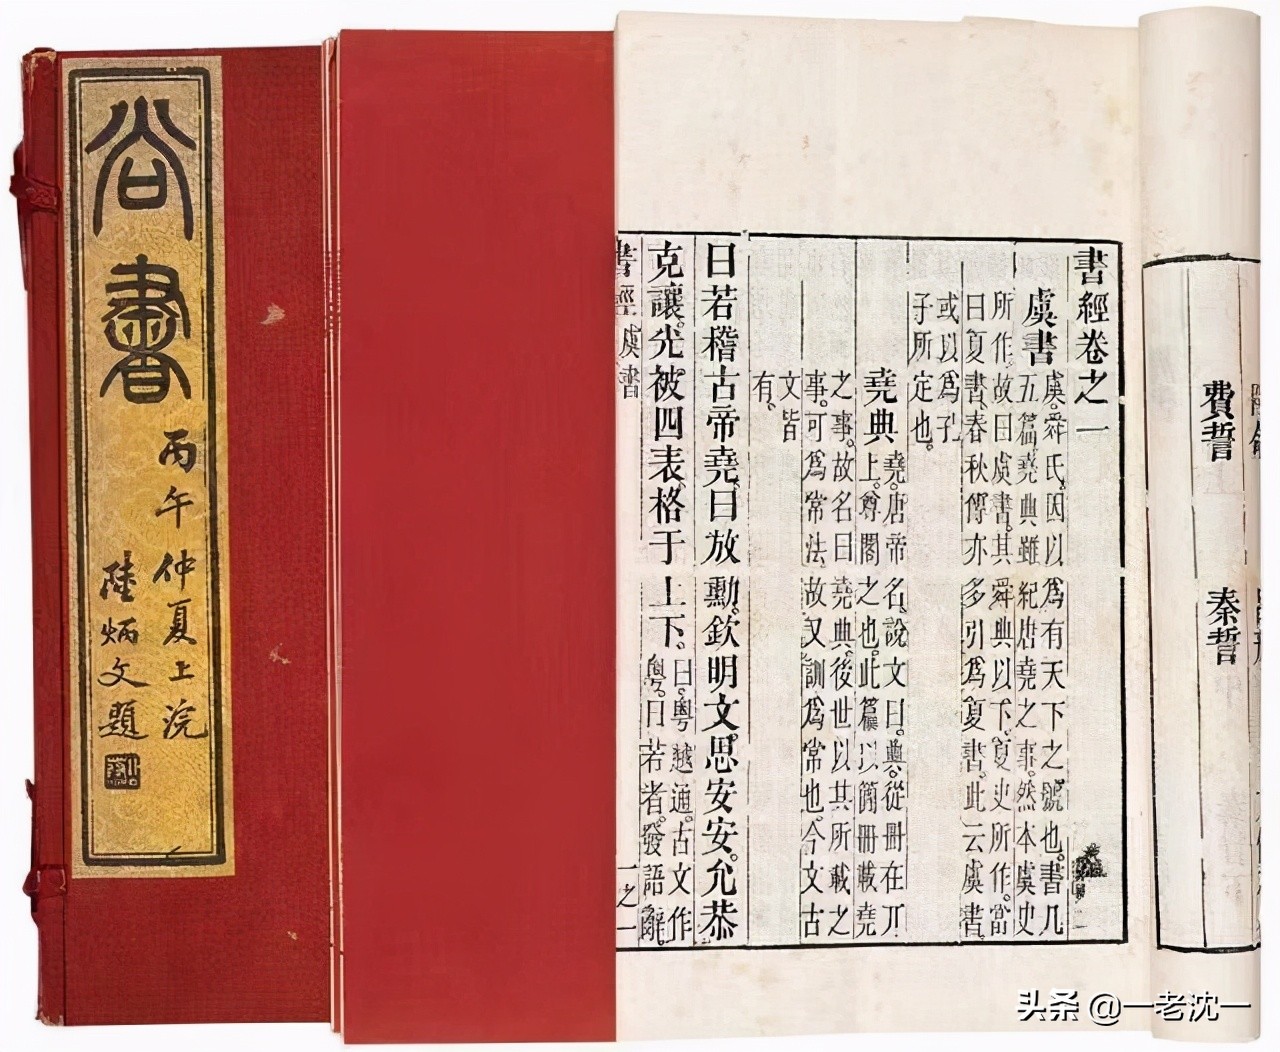 尚書
丙午仲夏上浣
陸炳文題
費誓 秦誓
書經卷之一
虞書
虞。舜氏。因以爲有天下之號也。書凡
五篇。堯典雖紀唐堯之事。然本虞史
所作。故曰虞書。其舜典以下。夏史所作。當
曰夏書。春秋傳亦多引爲夏書。此云虞書。
或以爲孔
子所定也。
堯典
堯。唐帝名。說文曰。典。從冊在丌
上。尊閣之也。此篇以簡冊載堯
之事。故名曰堯典。後世以其所載之
事。可爲常法。故又訓爲常也。今文古
文皆
有。
曰若稽古帝堯。曰放勳。欽明文思安安。允恭
克讓。光被四表。格于上下。
曰。粵越通。古文作
粵。曰若者。發語辭。
書經 虞書 一之一
头条 @一老沈一